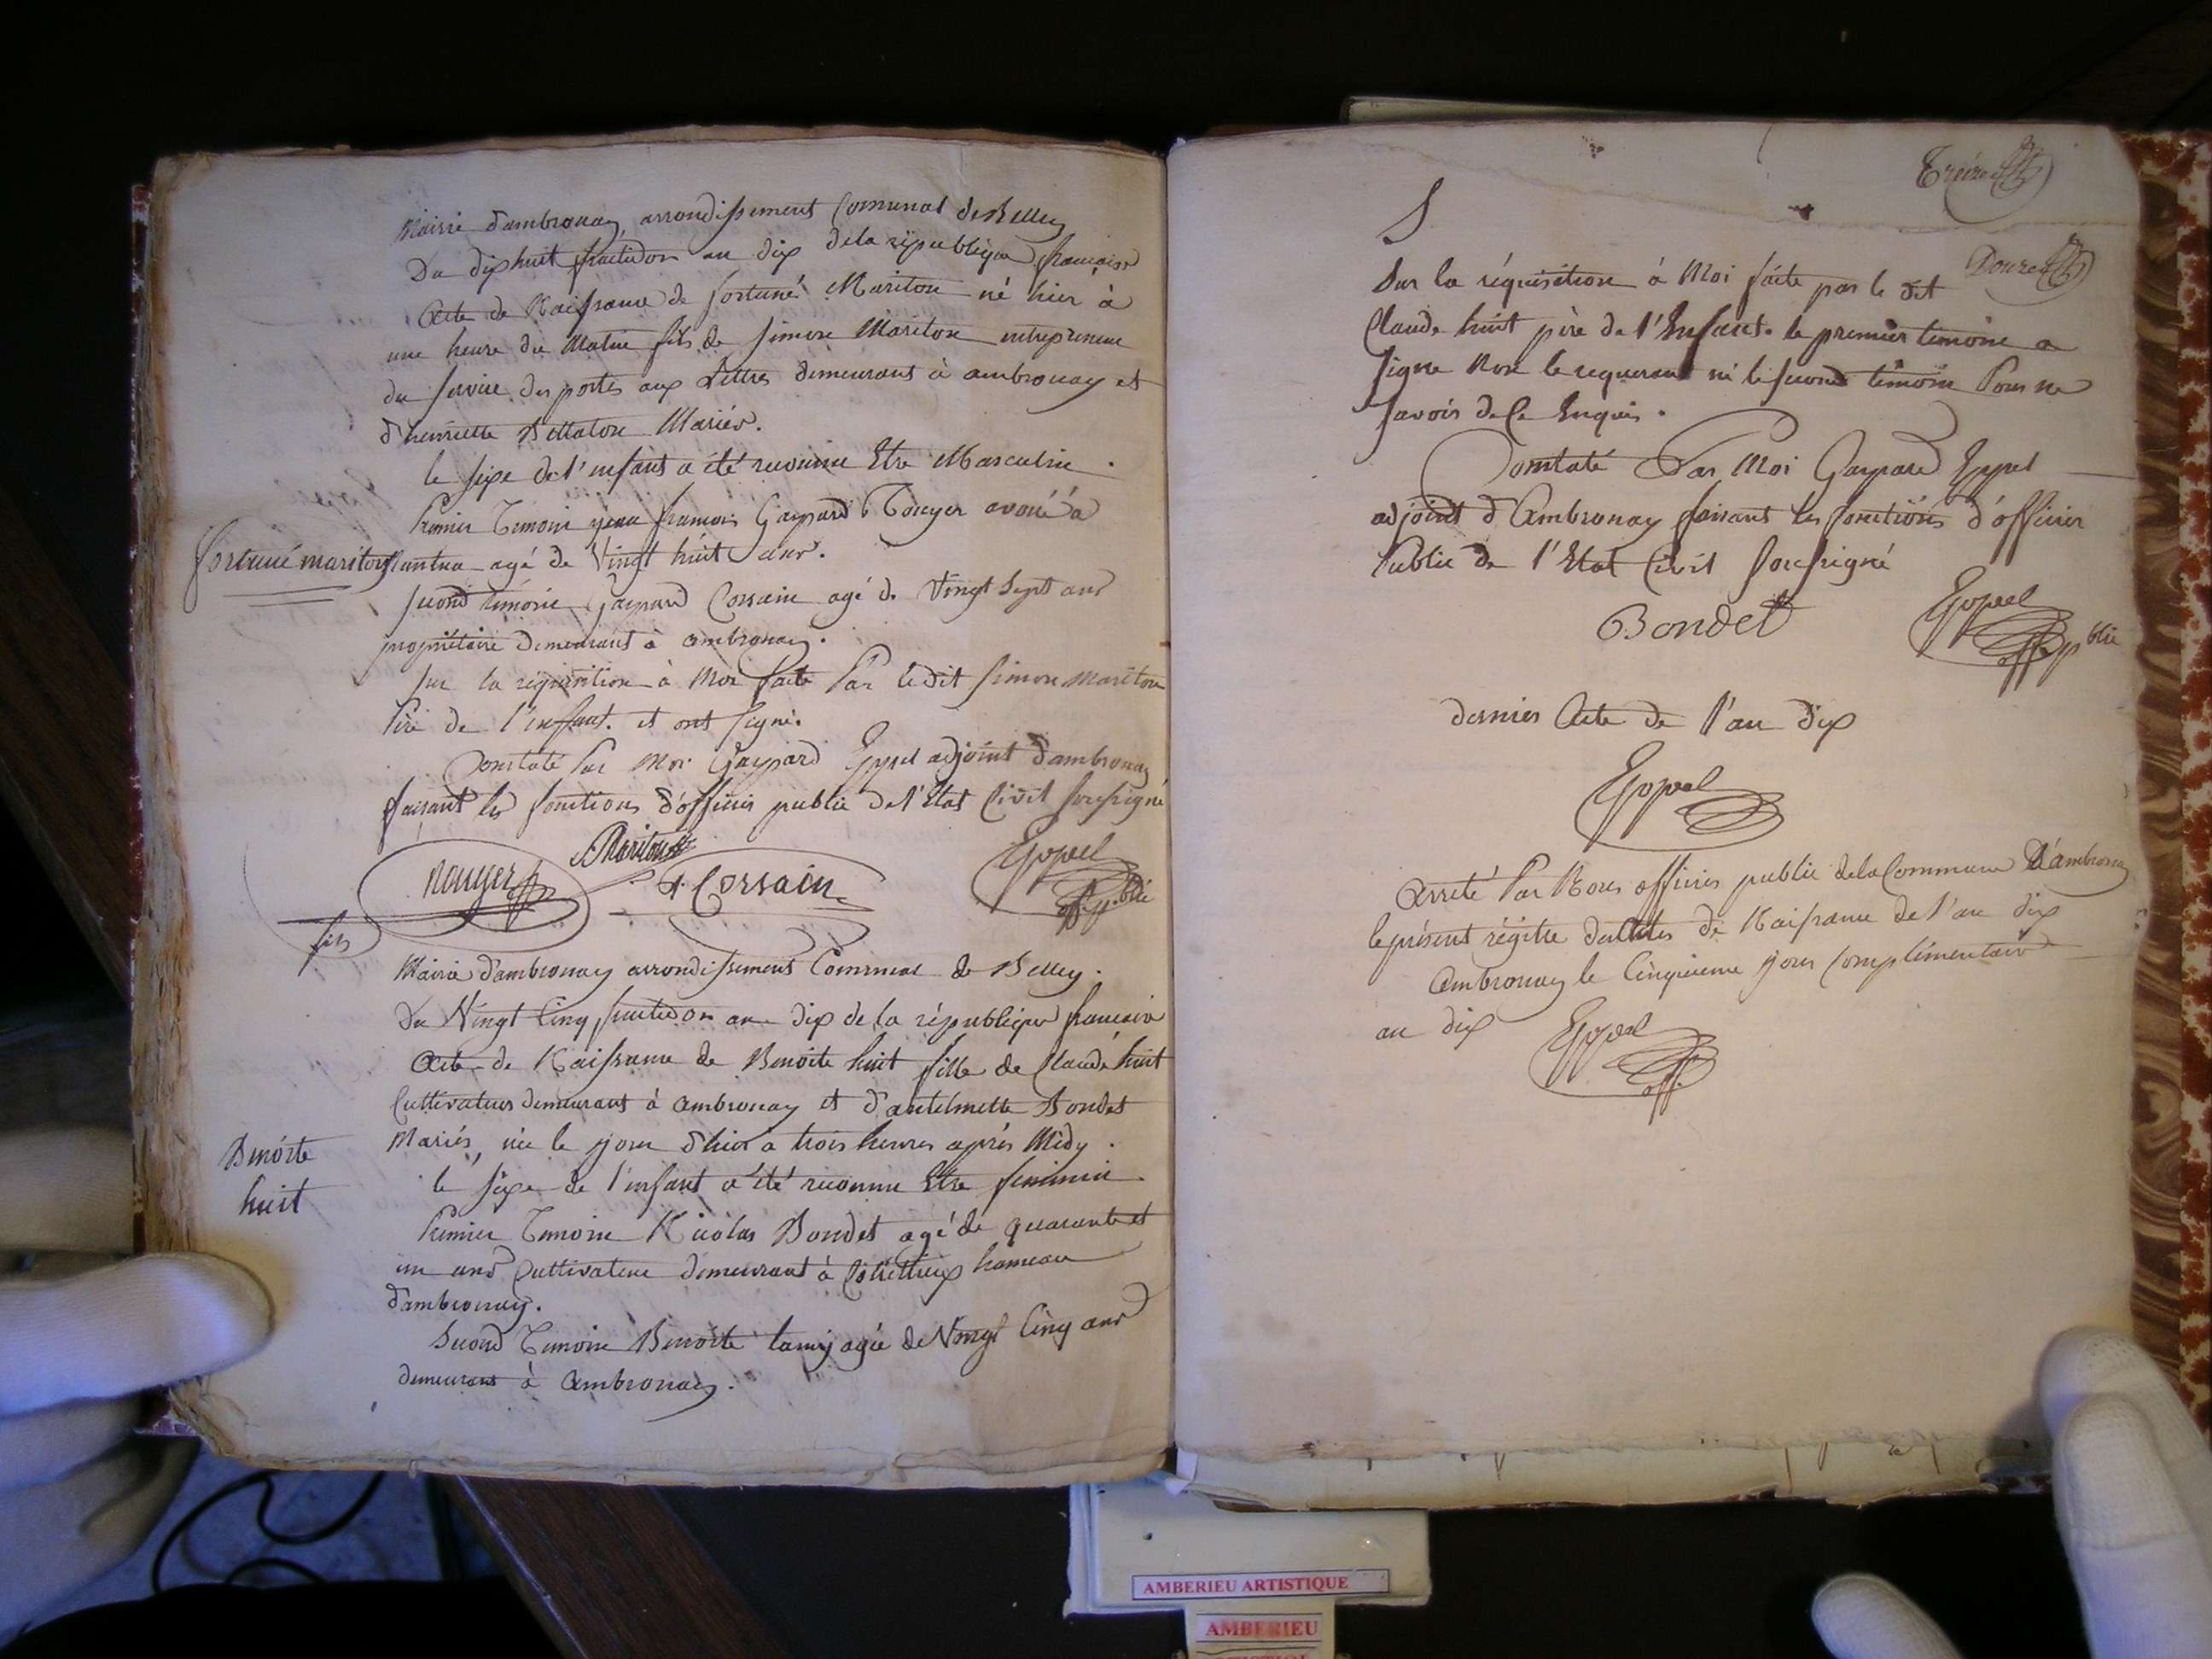 Mairie d'ambronay, arrondissement Communal de Belley
Du dix huit fructidor an dix de la république française
Acte de Naissance de fortuné Mariton né hier à
une heure du Matin fils de Simon Mariton entrepreneur
du service des postes aux Lettres demeurant à ambronay et
d'henriette Billaton Mariés.
le sexe de l'enfant a été reconnu Etre Masculin.
Premier Temoin jean francois Gaspard Rouyer avoué à
fortuné mariton
Nantua agé de Vingt huit ans.
second témoin Gaspard Corsain agé de Vingt Sept ans
propriétaire demeurant à ambronay.
sur la réquisition à Moi faite Par le dit Simon Mariton
Pére de l'enfant. et ont signé.
Constaté Par Moi Gaspard Eppel adjoint d'ambronay
faisant les fonctions d'officier public de l'Etat Civil soussigné
Mariton
Rouyer
fils
Corsain
Eppel
off. p.blic
Mairie d'ambronay arrondissement Communal de Belley.
Du Vingt Cinq fructidor an dix de la république francaise
Acte de Naissance de Benoite huit fille de Claude huit
Cultivateur demeurant à ambronay et d'antelmette Bondet
Mariés, née le jour d'hier à trois heures après Midy.
Benoite
huit
le sexe de l'enfant a été reconnu Etre feminin.
Premier Temoin Nicolas Bondet agé de quarante et
un ans Cultivateur demeurant à hameau
d'ambronay.
Second Temoin Benoite agée de Vingt Cinq ans
demeurant à Ambronay.
Treize
Douze
Sur la réquisition à Moi faite par le dit
Claude huit père de l'Enfant. le premier temoin a
signé Non le requerant ni le second témoin Pour ne
savoir de Ce Enquis.
Constaté Par Moi Gaspard Eppel
adjoint d'Ambronay faisant les fonctions d'officier
Public de l'Etat Civil soussigné
Bondet
Eppel
off. p.blic
dernier Acte de l'an dix
Eppel
Arreté Par Nous officier public de la Commune D'ambronay
le présent régitre des Actes de Naissance de l'an dix
Ambronay le Cinquieme jour Complémentaire
an dix
Eppel
off.
AMBERIEU ARTISTIQUE
AMBERIEU